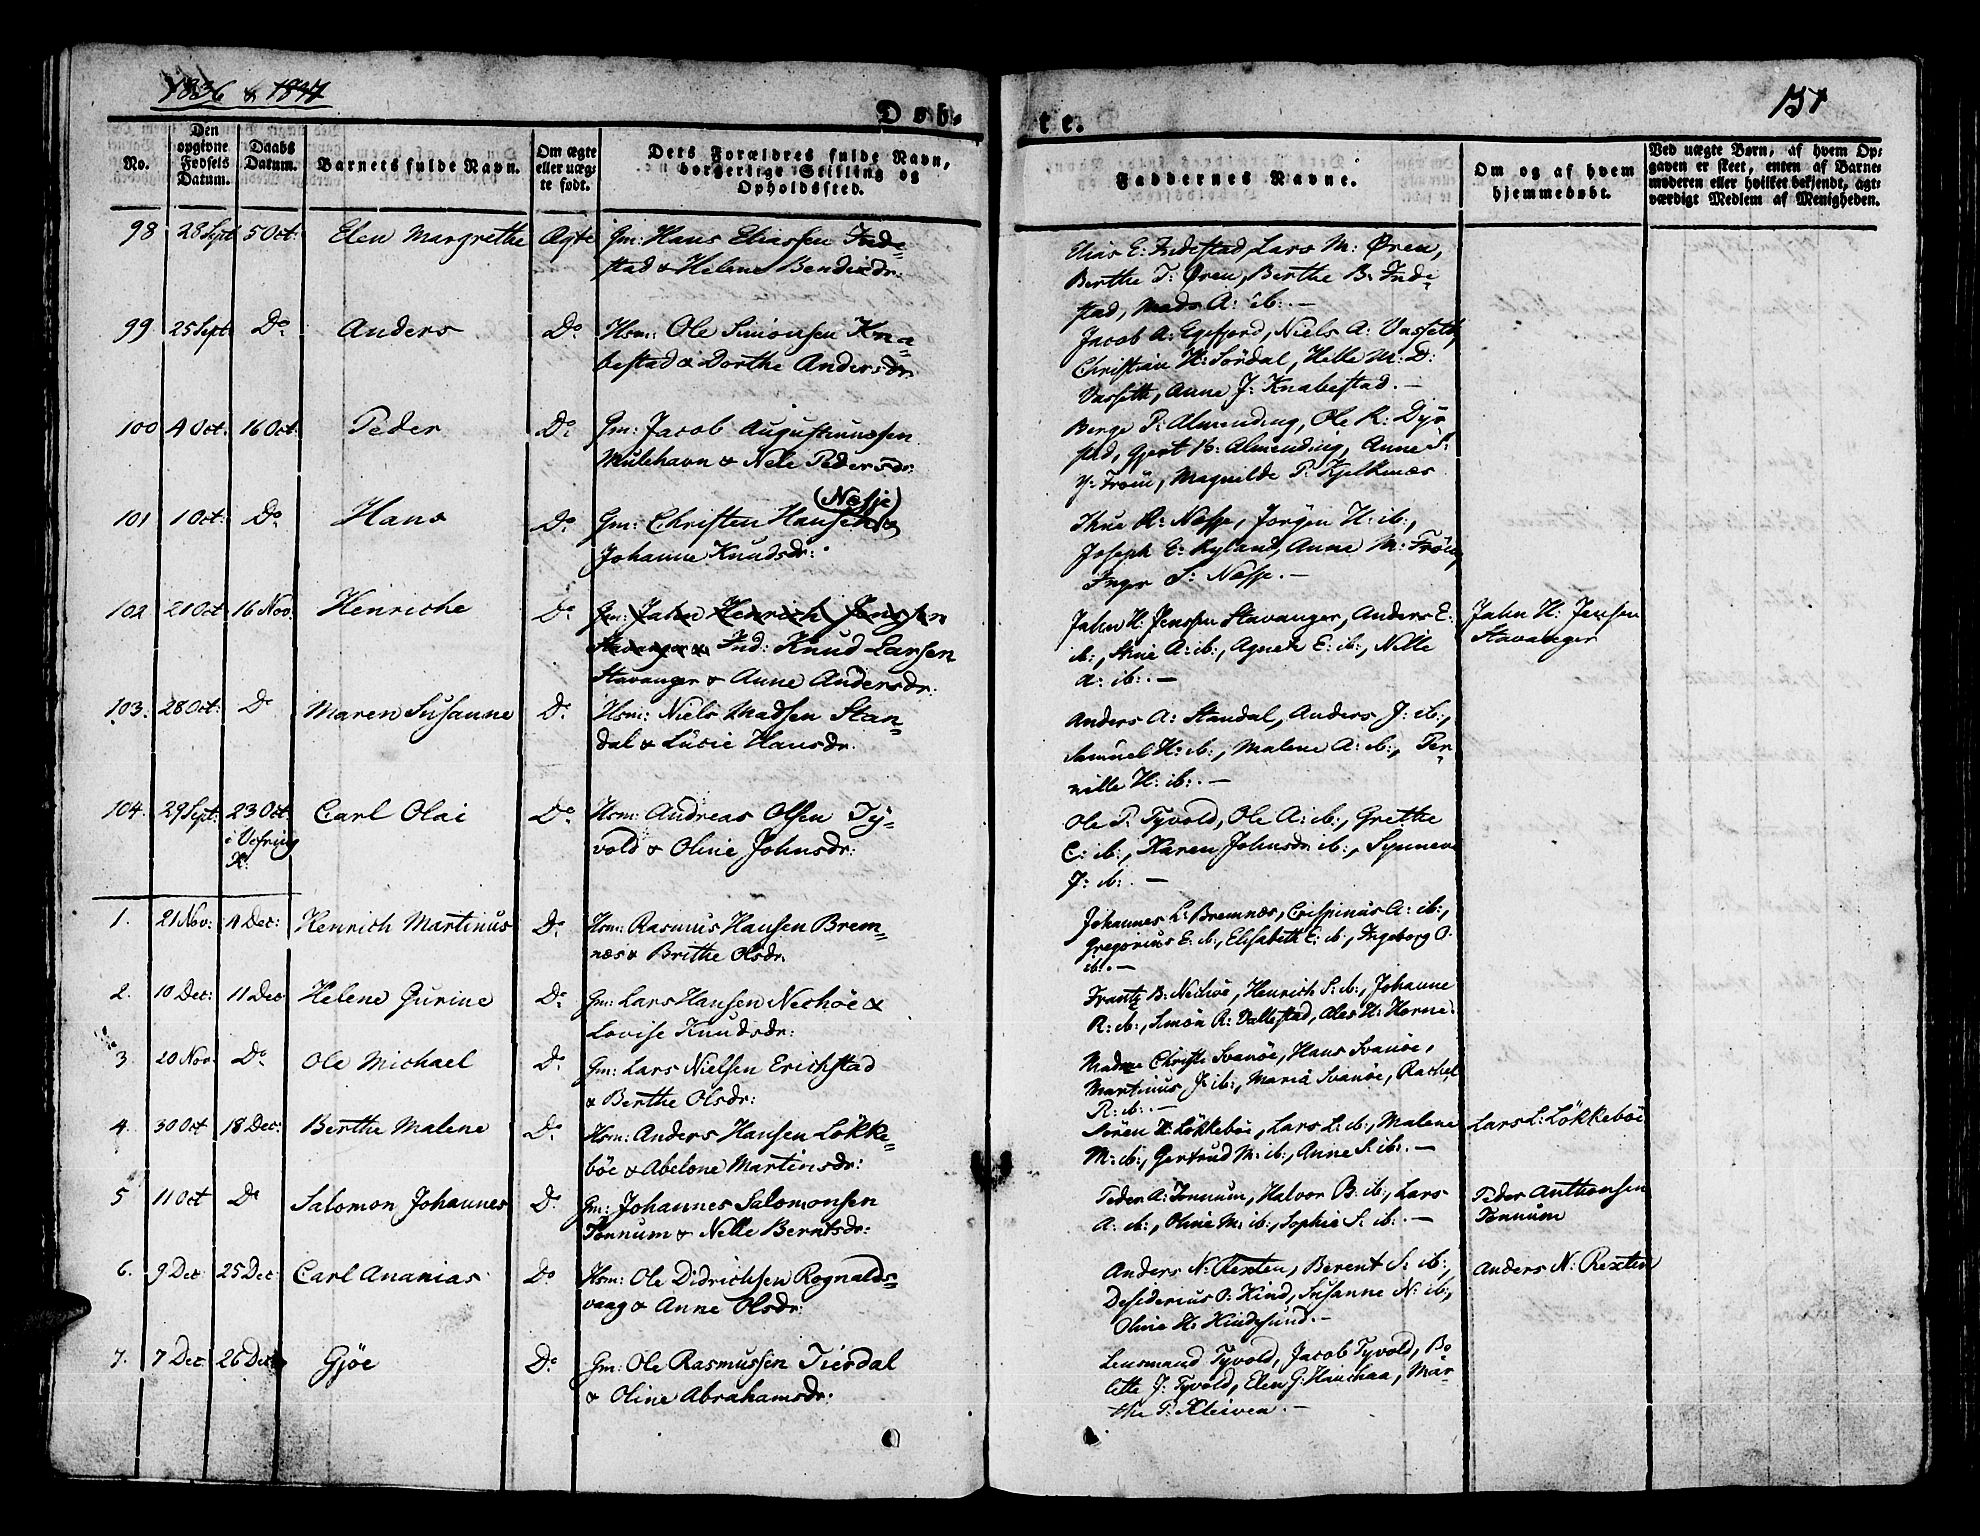 1836 & 1837
Døb-
te.
151
No.
Den opgivne Fødsels Datum.
Daabs Datum.
Barnets fulde Navn.
Om ægte eller uægte født.
Dets Forældres fulde Navn, borgerlige Stilling og Opholdssted.
Faddernes Navne.
Om og af hvem hjemmedøbt.
Ved uægte Børn, af hvem Opgaven er skeet, enten af Barnemoderen eller hvilket bekjendt, agtværdigt Medlem af Menigheden.
98 28 Sept 5 Oct: Elen Margrethe Ægte Gm: Hans Eliassen Inde=
stad & Helene Bendixdr:
Elias E: Indestad, Lars M: Øren,
Berthe T: Øren, Berthe B: Inde=
stad, Mads A: ib: —
99 25 Sept Do Anders Do Hsm: Ole Simonsen Kna=
bestad & Dorthe Andersdr.
Jacob A: Eyefjord, Niels A: Vasseth,
Christian H: Sørdal, Helle M: D:
Vasseth, Anne J: Knabestad. —
100 4 Oct. 16 Oct. Peder Do Gm: Jacob Augustinussen
Mulehavn & Nele Pedersdr:
Berge P: Almending, Ole R: Dyø
stad, Gert K: Almending, Anne S:
Y: Frøin, Magnilde P: Kjelkenæs
101 1 Oct: Do Hans Do Gm: Christen Hansen (Nesje) &
Johanne Knudsdr:
Thue R: Nesse, Jørgen H: ib:,
Joseph E: Ryland, Anne M: Frøin,
Inger S: Nesse. —
102 21 Oct 16 Nov. Henriche Do Gm: Jahn Henrich Jensen
Stavanger & Ind: Knud Larsen
Stavanger & Anne Andersdr:
Jahn H: Jenssen Stavanger, Anders E:
ib:, Stine A: ib:, Agnete E: ib:, Nille
A: ib: —
Jahn H: Jensen
Stavanger
103. 28 Oct: Do Maren Susanne Do Hsm: Niels Madsen Stan=
dal & Lucie Hansdr.
Anders A: Standal, Anders J: ib:,
Samuel H: ib:, Malene A: ib:, Per=
nille H: ib: —
104. 29 Sept: 23 Oct. Carl Olai Do Hsm: Andreas Olsen Ty=
i Vefring
K:
vold & Oline Johnsdr:
Ole P. Tyvold, Ole A: ib:, Grethe
C: ib:, Karen Johnsdr ib:, Synneve
J: ib: —
1. 21 Nov: 4 Dec: Henrich Martinus Do Hsm: Rasmus Hansen Brem=
næs & Brithe Olsdr.
Johannes L: Bremnæs, Crispinus A: ib:,
Gregorius E: ib:, Elisabeth E: ib:, Ingeborg O.
ib: —
2. 10 Dec: 11 Dec Helene Gurine Do Gm: Lars Hansen Nechøe &
Lovise Knudsdr:
Frantz B: Nechøe, Henrich S: ib:, Johanne
R: ib:, Simon R: Dallestad, Oles H: Horne.
3. 20 Nov: Do Ole Michael Do Gm: Lars Nielsen Erichstad
& Berthe Olsdr:
Madme Christie Svanøe, Hans Svanøe,
Martinus J: ib:, Maria Svanøe, Rachel
R: ib: —
4. 30 Oct 18 Dec: Berthe Malene Do Hsm: Anders Hansen Løkke=
bøe & Abelone Martinsdr:
Søren H: Løkkebøe, Lars L: ib:, Malene
M: ib:, Gertrud M: ib:, Anne S: ib: —
Lars L: Løkkebøe
5 11 Oct Do Salomon Johannes Do Gm: Johannes Salomonsen
Tonnum & Nelle Berntsdr:
Peder A: Tonnum, Halvor B: ib:, Lars
A: ib:, Oline M: ib:, Sophie S: ib: —
Peder Anthonsen
Tonnum
6. 9 Dec 25 Dec: Carl Ananias Do Hsm: Ole Didrichsen Rognalds=
vaag & Anne Olsdr:
Anders N: Rexten, Berent S: ib:,
Desiderius P: Hind, Susanne N: ib:,
Oline H: Hindesund. —
Anders N: Rexten
7. 7 Dec: 26 Dec: Gjøe Do Gm: Ole Rasmussen Tierdal
& Oline Abrahamsdr:
Lensmand Tyvold, Jacob Tyvold, Bo
lette J: Tyvold, Elen G: Hinchaa, Mar=
the P: Kleiven. —